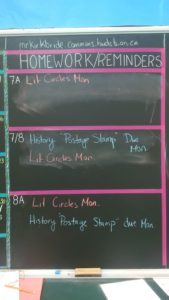 mrkirkbride.commons.hwdsb.on.ca
HOMEWORK/REMINDERS
7A Lit Circles Mon
7/8 History "Postage Stamp" Due Mon
Lit Circles Mon
8A Lit Circles Mon.
History "Postage Stamp" due Mon